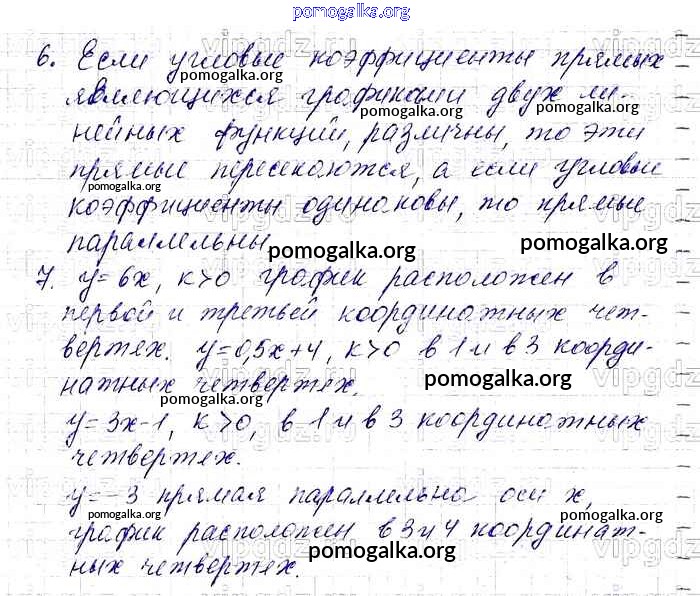 pomogalka.org
6. Если угловые коэффициенты прямых
pomogalka.org
являющихся графиками двух ли-
pomogalka.org pomogalka.org
нейных функций, различны, то эти
прямые пересекаются, а если угловые
pomogalka.org
коэффициенты одинаковы, то прямые
параллельны
pomogalka.org pomogalka.org
7. y=6x, k>0 график расположен в
первой и третьей координатных чет-
вертях. y=0,5x+4, k>0 в 1 и в 3 коорди-
натных четвертях.
pomogalka.org pomogalka.org
y=3x-1, k>0, в 1 и в 3 координатных
четвертях.
y=-3 прямая параллельна оси x,
pomogalka.org pomogalka.org pomogalka.org
график расположен в 3 и 4 координат-
pomogalka.org
ных четвертях.